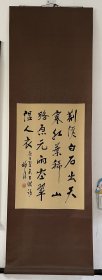 荆溪白石出天
寒红葉稀山
路元无雨空翠
湿人衣